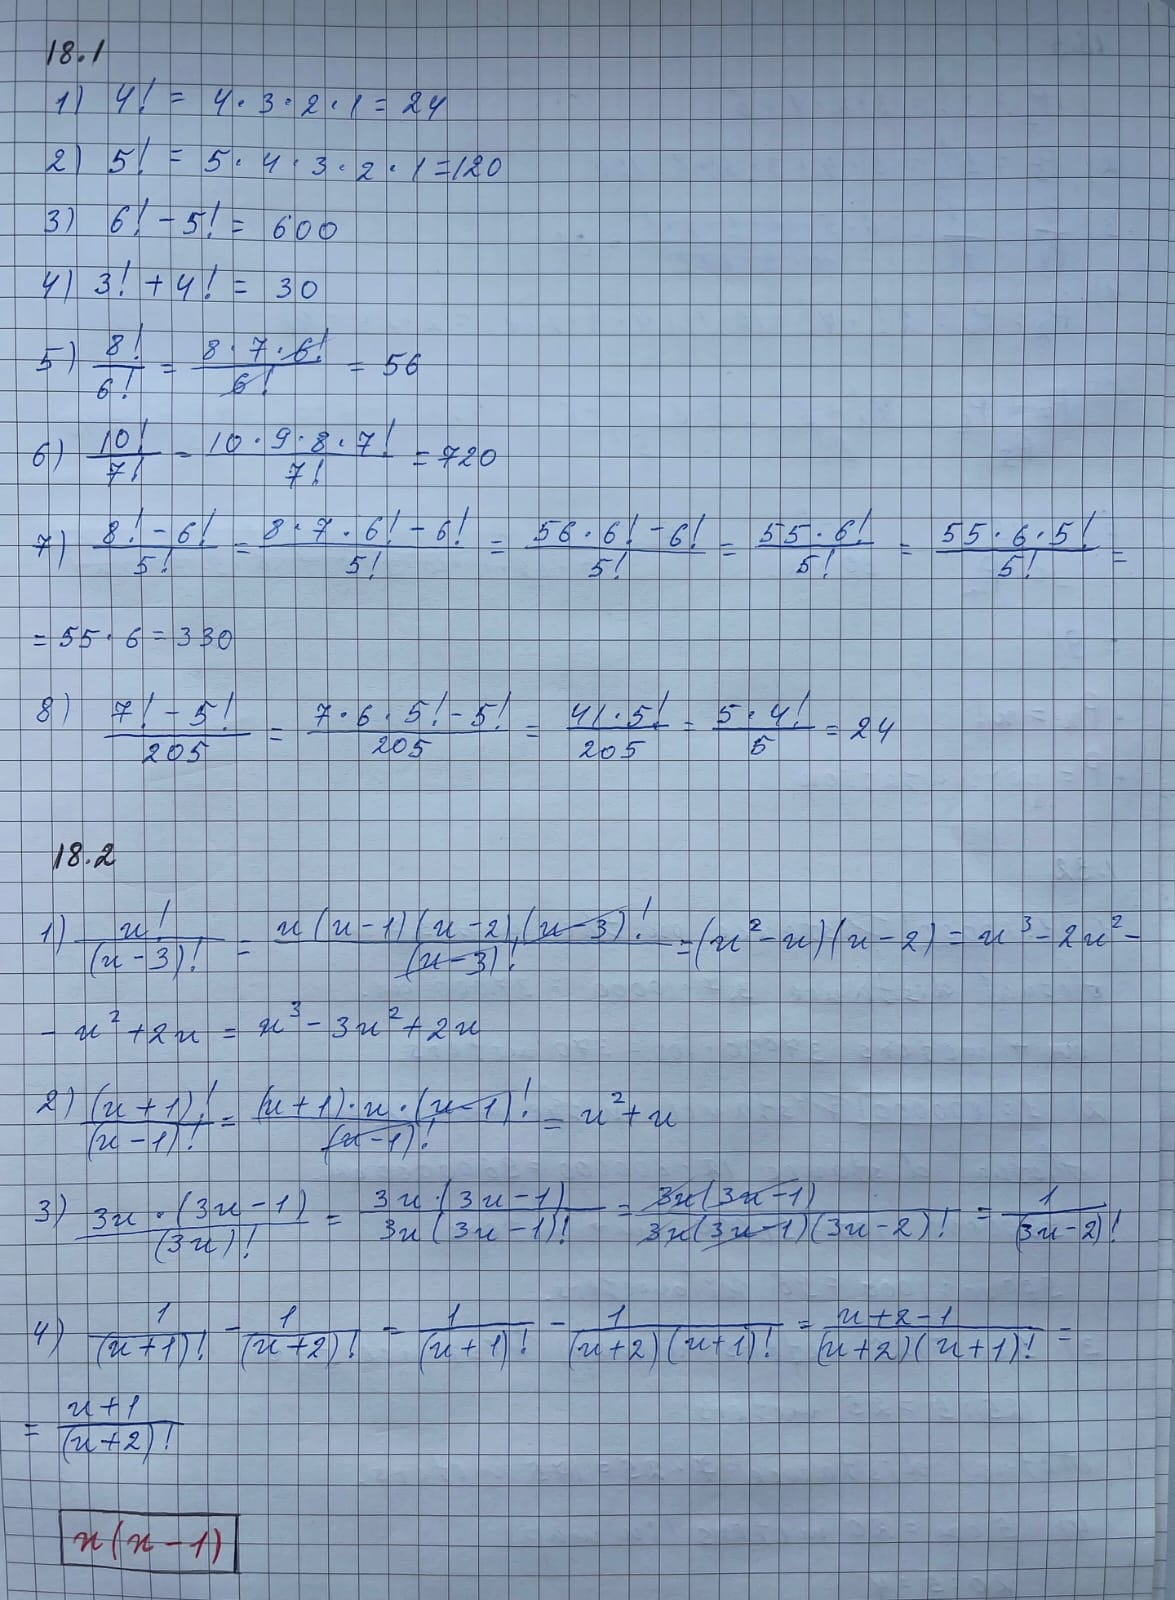 18.1
1) 4! = 4 · 3 · 2 · 1 = 24
2) 5! = 5 · 4 · 3 · 2 · 1 = 120
3) 6! - 5! = 600
4) 3! + 4! = 30
5) 8!/6! = 8 · 7 · 6!/6! = 56
6) 10!/7! = 10 · 9 · 8 · 7!/7! = 720
7) (8! - 6!)/5! = (8 · 7 · 6! - 6!)/5! = (56 · 6! - 6!)/5! = 55 · 6!/5! = 55 · 6 · 5!/5! =
= 55 · 6 = 330
8) (7! - 5!)/205 = (7 · 6 · 5! - 5!)/205 = 41 · 5!/205 = 5 · 4!/5 = 24
18.2
1) n!/(n-3)! = n(n-1)(n-2)(n-3)!/(n-3)! = (n²-n)(n-2) = n³-2n²-
- n²+2n = n³-3n²+2n
2) (n+1)!/(n-1)! = (n+1)·n·(n-1)!/(n-1)! = n²+n
3) 3n·(3n-1)/(3n)! = 3n·(3n-1)/3n(3n-1)! = 3n(3n-1)/3n(3n-1)(3n-2)! = 1/(3n-2)!
4) 1/(n+1)! - 1/(n+2)! = 1/(n+1)! - 1/(n+2)(n+1)! = (n+2-1)/(n+2)(n+1)! =
= (n+1)/(n+2)!
n(n-1)